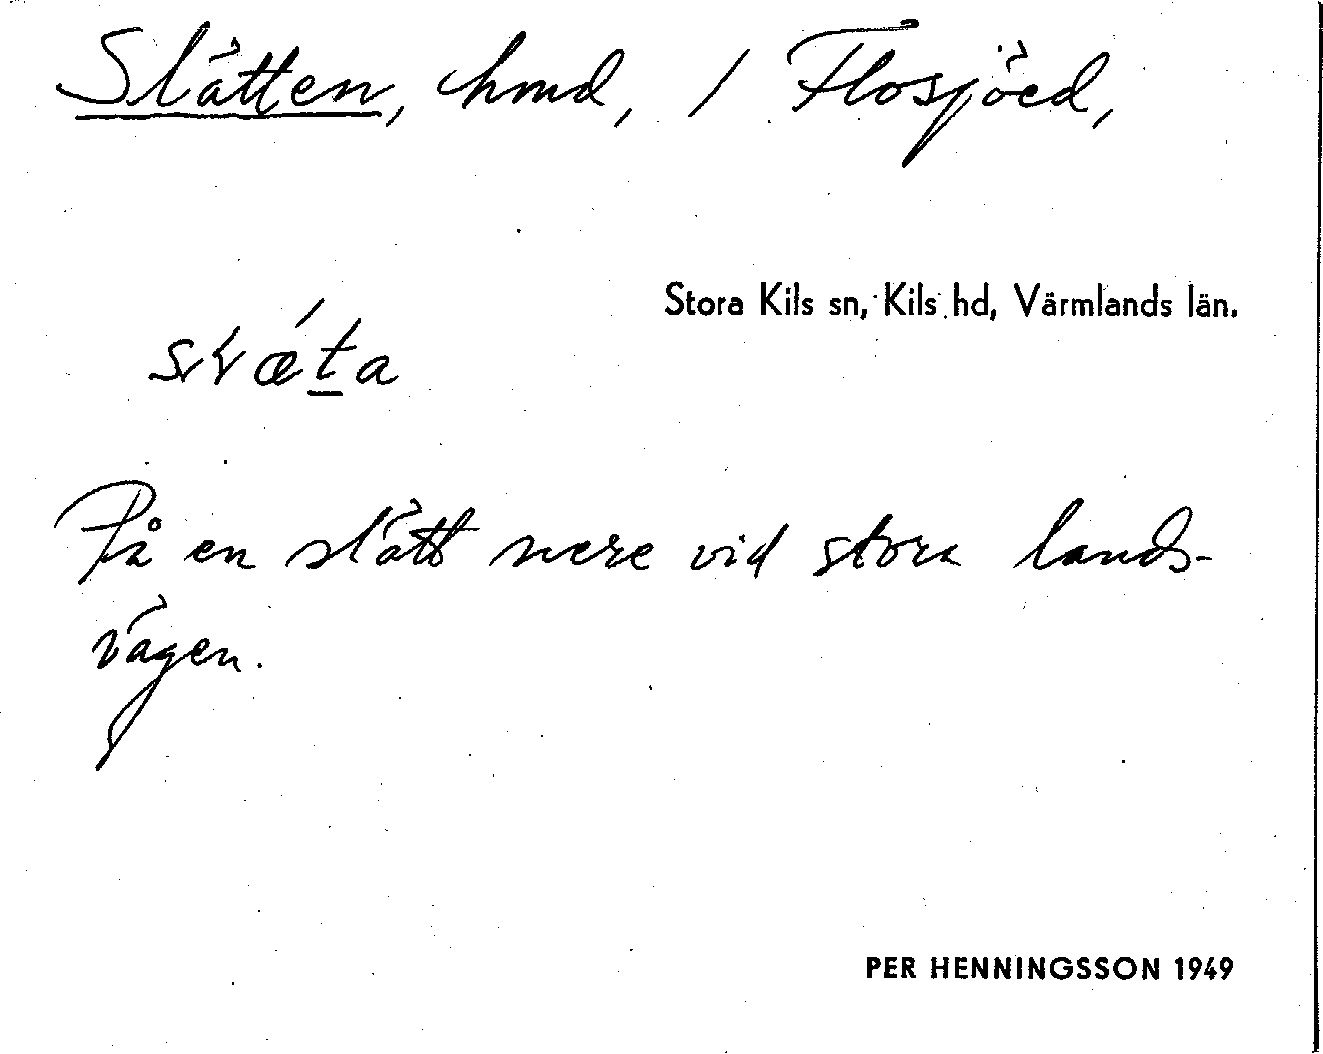 Slätten, hmd, / Flosjöed,
Stora Kils sn, Kils hd, Värmlands län.
På en slätt nere vid stora lands-
vägen.
PER HENNINGSSON 1949